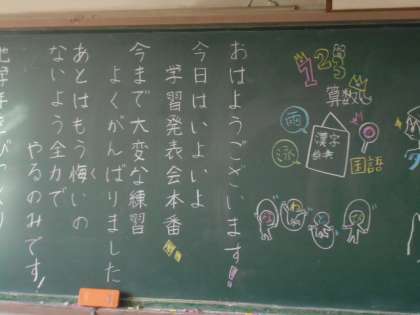 おはようございます!
今日はいよいよ
学習発表会本番!!
今まで大変な練習
よくがんばりました
あとはもう悔いの
く
ないよう全力で
やるのみです!
123
算数
雨
泳
漢字
国語